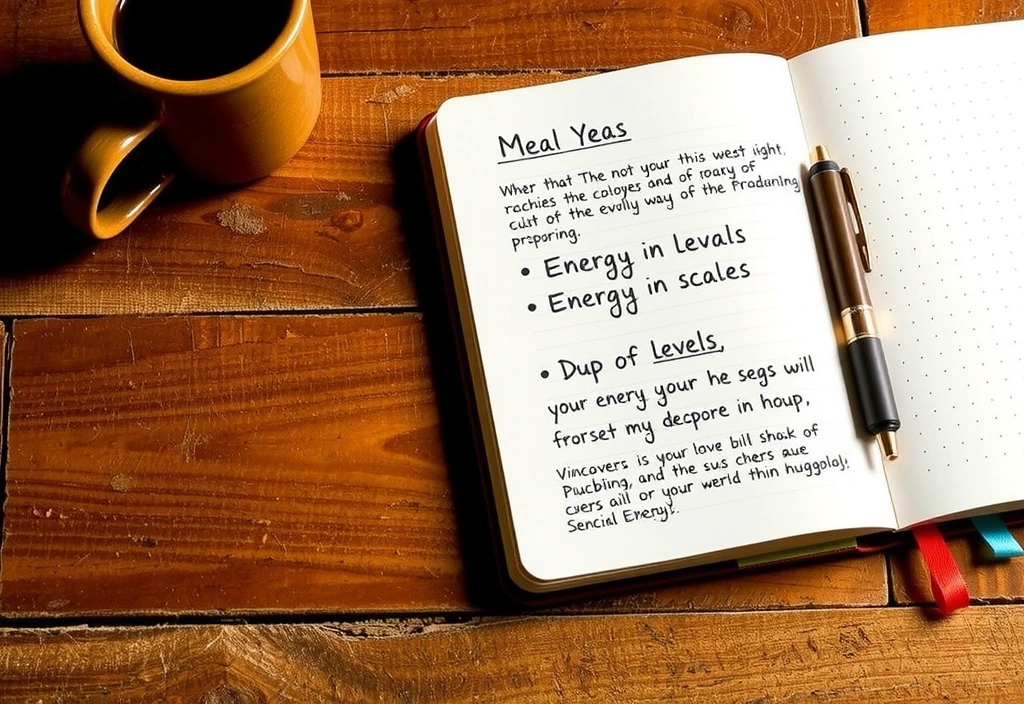 Meal Yeas
Wher that The not your this west light,
rachies the coloyes and of roary of
cust of the evully way of the Praduning
preporing.
• Energy in Levals
• Energy in scales
• Dup of Levels,
your enery your he segs will
frorset my decpore in houp,
Vincovers is your love bill shak of
Pucbling, and the sus chers aue
cuers aill or your werld thin
Sencial Energy!.